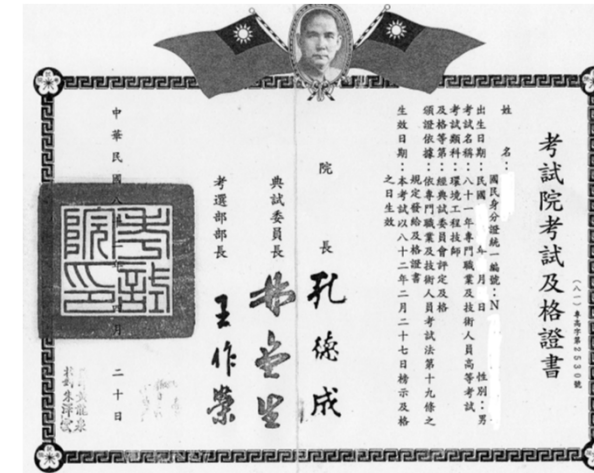 考試院考試及格證書
(八一)專高字第2530號
姓名：
國民身分證統一編號：N
出生日期：民國 年 月 日 性別：男
考試名稱：八十一年專門職業及技術人員高等考試
考試類科：環境工程技師
及格等第：經典試委員會評定及格
頒證依據：依專門職業及技術人員考試法第十九條之
規定發給及格證書
生效日期：本考試以八十二年二月二十七日榜示及格
之日生效
院長 孔德成
典試委員長
考選部部長 王作榮
中華民國八十 月二十日
考試院印